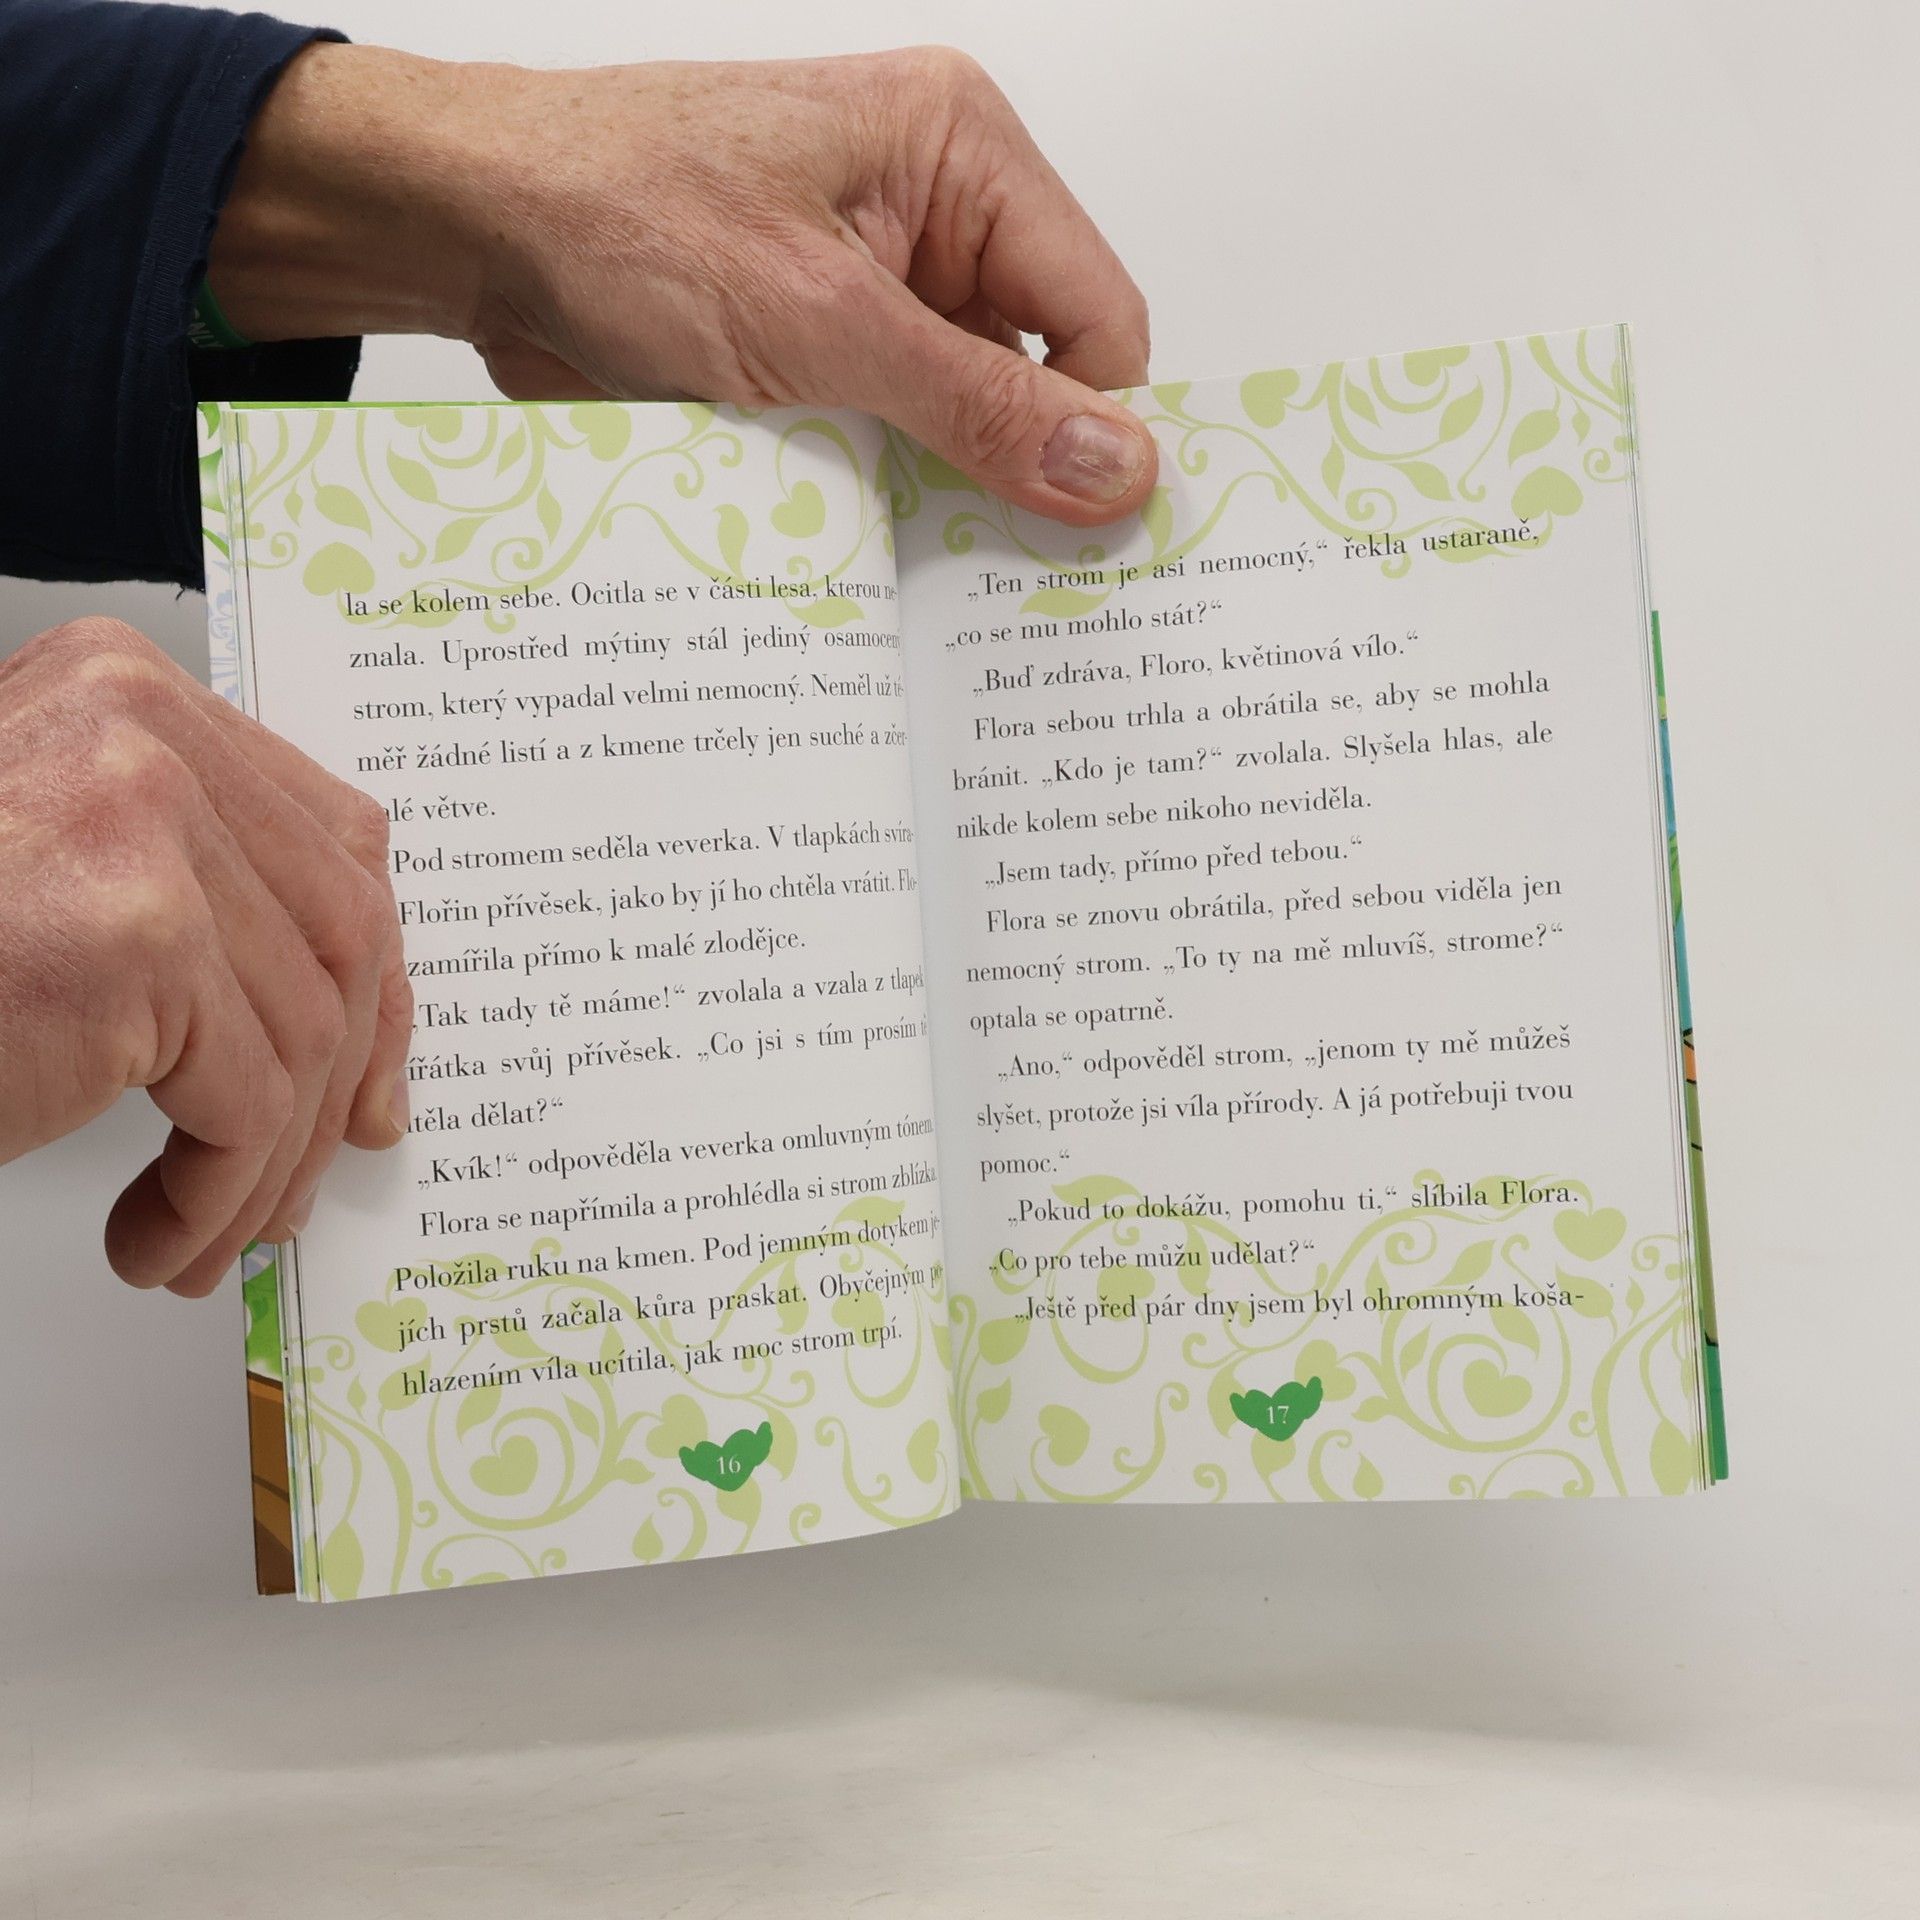 la se kolem sebe. Ocitla se v části lesa, kterou ne-
znala. Uprostřed mýtiny stál jediný osamocený
strom, který vypadal velmi nemocný. Neměl už té-
měř žádné listí a z kmene trčely jen suché a zčer-
alé větve.
Pod stromem seděla veverka. V tlapkách svíra-
Flořin přívěsek, jako by jí ho chtěla vrátit. Flo-
zamířila přímo k malé zlodějce.
„Tak tady tě máme!“ zvolala a vzala z tlapek
ířátka svůj přívěsek. „Co jsi s tím prosím tě
těla dělat?“
„Kvík!“ odpověděla veverka omluvným tónem.
Flora se napřímila a prohlédla si strom zblízka.
Položila ruku na kmen. Pod jemným dotykem je-
jích prstů začala kůra praskat. Obyčejným po-
hlazením víla ucítila, jak moc strom trpí.
16
„Ten strom je asi nemocný,“ řekla ustaraně,
„co se mu mohlo stát?“
„Buď zdráva, Floro, květinová vílo.“
Flora sebou trhla a obrátila se, aby se mohla
bránit. „Kdo je tam?“ zvolala. Slyšela hlas, ale
nikde kolem sebe nikoho neviděla.
„Jsem tady, přímo před tebou.“
Flora se znovu obrátila, před sebou viděla jen
nemocný strom. „To ty na mě mluvíš, strome?“
optala se opatrně.
„Ano,“ odpověděl strom, „jenom ty mě můžeš
slyšet, protože jsi víla přírody. A já potřebuji tvou
pomoc.“
„Pokud to dokážu, pomohu ti,“ slíbila Flora.
„Co pro tebe můžu udělat?“
„Ještě před pár dny jsem byl ohromným koša-
17